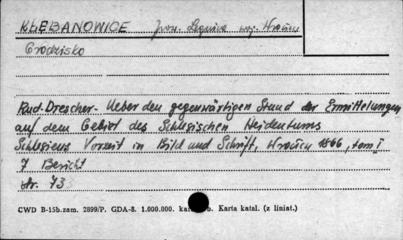 KŁĘBANOWICE pow. Legnica woj. Wrocław
Grodzisko
Rud. Drescher - Ueber den gegenwärtigen Stand der Ermittelungen
auf dem Gebiet des Schlesischen Heidentums
Schlesiens Vorzeit in Bild und Schrift, Wrocław 1866, tom I
7 Bericht
str. 73
CWD B-15b.zam. 2899/P. GDA-8. 1.000.000. Karta katal. (z liniat.)